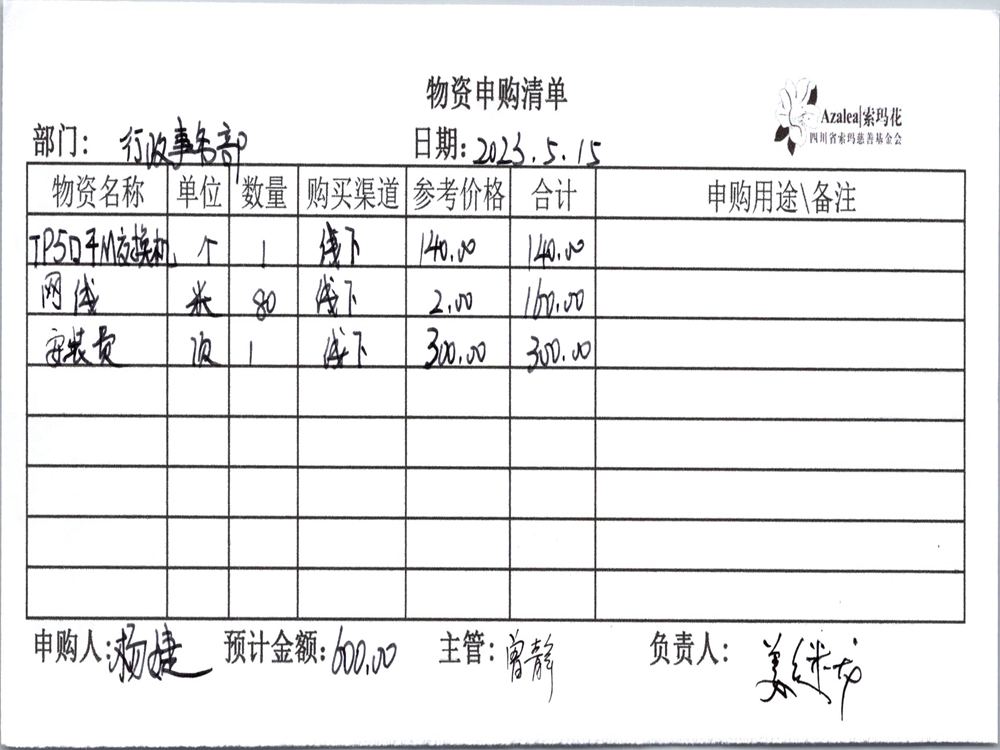 物资申购清单
Azalea|索玛花
四川省索玛慈善基金会
部门：行政事务部 日期：2023.5.15
物资名称 单位 数量 购买渠道 参考价格 合计 申购用途\备注
TP5口千M交换机 个 1 线下 140.00 140.00
网线 米 80 线下 2.00 160.00
安装费 次 1 线下 300.00 300.00
申购人：杨捷 预计金额：600.00 主管：曾静 负责人：